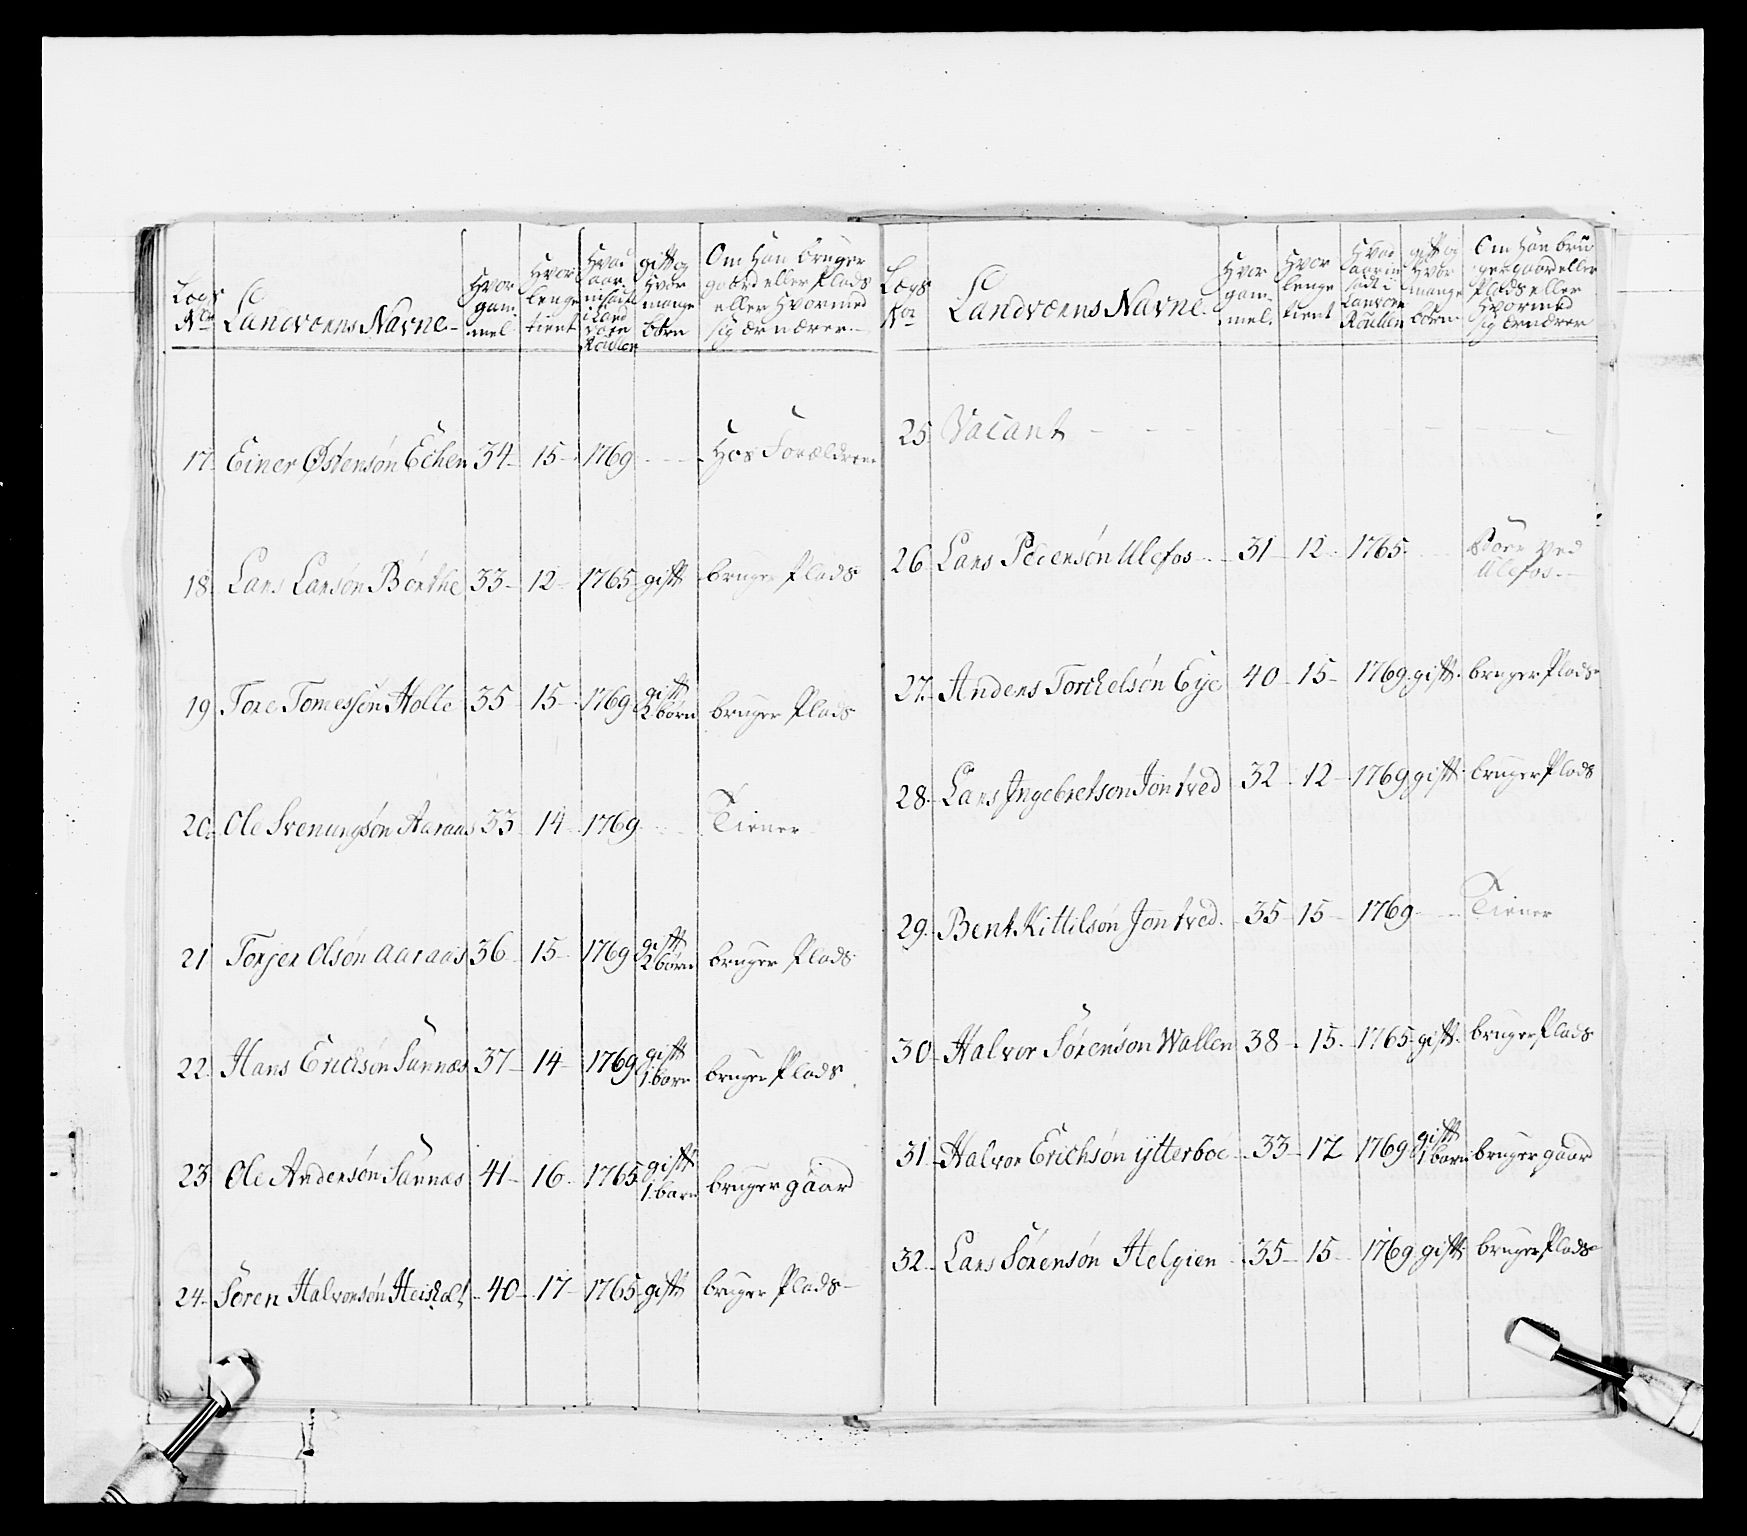 Lægs No Landværns Navne Hvor gammel Hvor lenge tient Hvad aar indsadt i Land værn Roullen gift og Hvor mange børn Om Han bruger gaard eller Plads eller Hvormed sig ærnærer
17. Einer Østensón Echen 34 15 1769 Hos Forældrene
18. Lars Larsón Børthe 33 12 1765 gift bruger Plads
19 Tore Tomessón Holte 35 15 1769 gift 2 børn bruger Plads
20. Ole Svenungsón Aaraas 33 14 1769 Tiener
21 Torjer Olsón Aaraas 36 15 1769 gift 2 børn bruger Plads
22. Hans Erichsón Sannæs 37 14 1769 gift 1 barn bruger Plads
23 Ole Andersón Sannæs 41 16 1765 gift 1 barn bruger gaard
24. Sören Halvorsón Heisholt 40 17 1765 gift bruger Plads
Lægs No Landværns Navne Hvor gammel. Hvor lenge tient Hvad aar ind sadt i Lanværn Roullen gift og Hvor mange børn Om Han bruger gaard eller Plads eller Hvormed sig ærnærer
25. Vacant
26 Lars Pedersón Ulefos 31 12 1765 ved Ulefos
27. Anders Torchelsón Eye 40 15 1769 gift bruger Plads
28. Lars Ingebretsen Jontved 32 12 1769 gift bruger Plads
29. Bent Kittilsón Jontved 35 15 1769 Tiener
30 Halvor Sørenson Wallen 38 15 1765 gift bruger Plads
31. Halvor Erichsón ytterboe 33 12 1769 gift 1 barn bruger gaard
32. Lars Sörensón Helgien 35 15 1769 gift bruger Plads